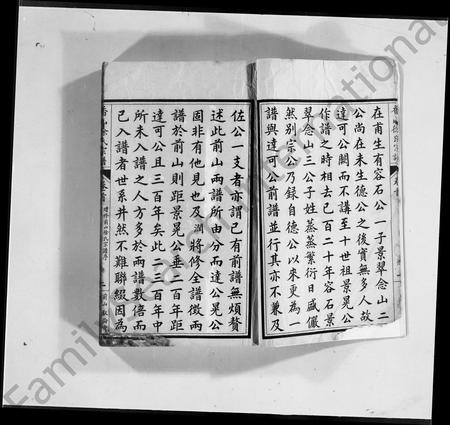 在甫生有容石公一子景翠念山二
公尚在未生德公之後實無多人故
達可公闕而不講至十世祖景晃公
作譜之時相去已百二十年容石景
翠念山三公子姓蒸蒸繁衍日盛儼
然别宗公乃録自德公以來更為一
譜與達可公前譜並行其亦不兼及
佐公一支者亦謂已有前譜無煩贅
述此前山兩譜所由分而達公晃公
固非有他見也及潤將修全譜徵兩
譜於前山則距景晃公垂二百年距
達可公且三百年矣此二三百年中
所未入譜之人方多於兩譜數倍而
已入譜者世系井然不難聯綴因為
香山徐氏宗譜
卷首
二
前山
Family International